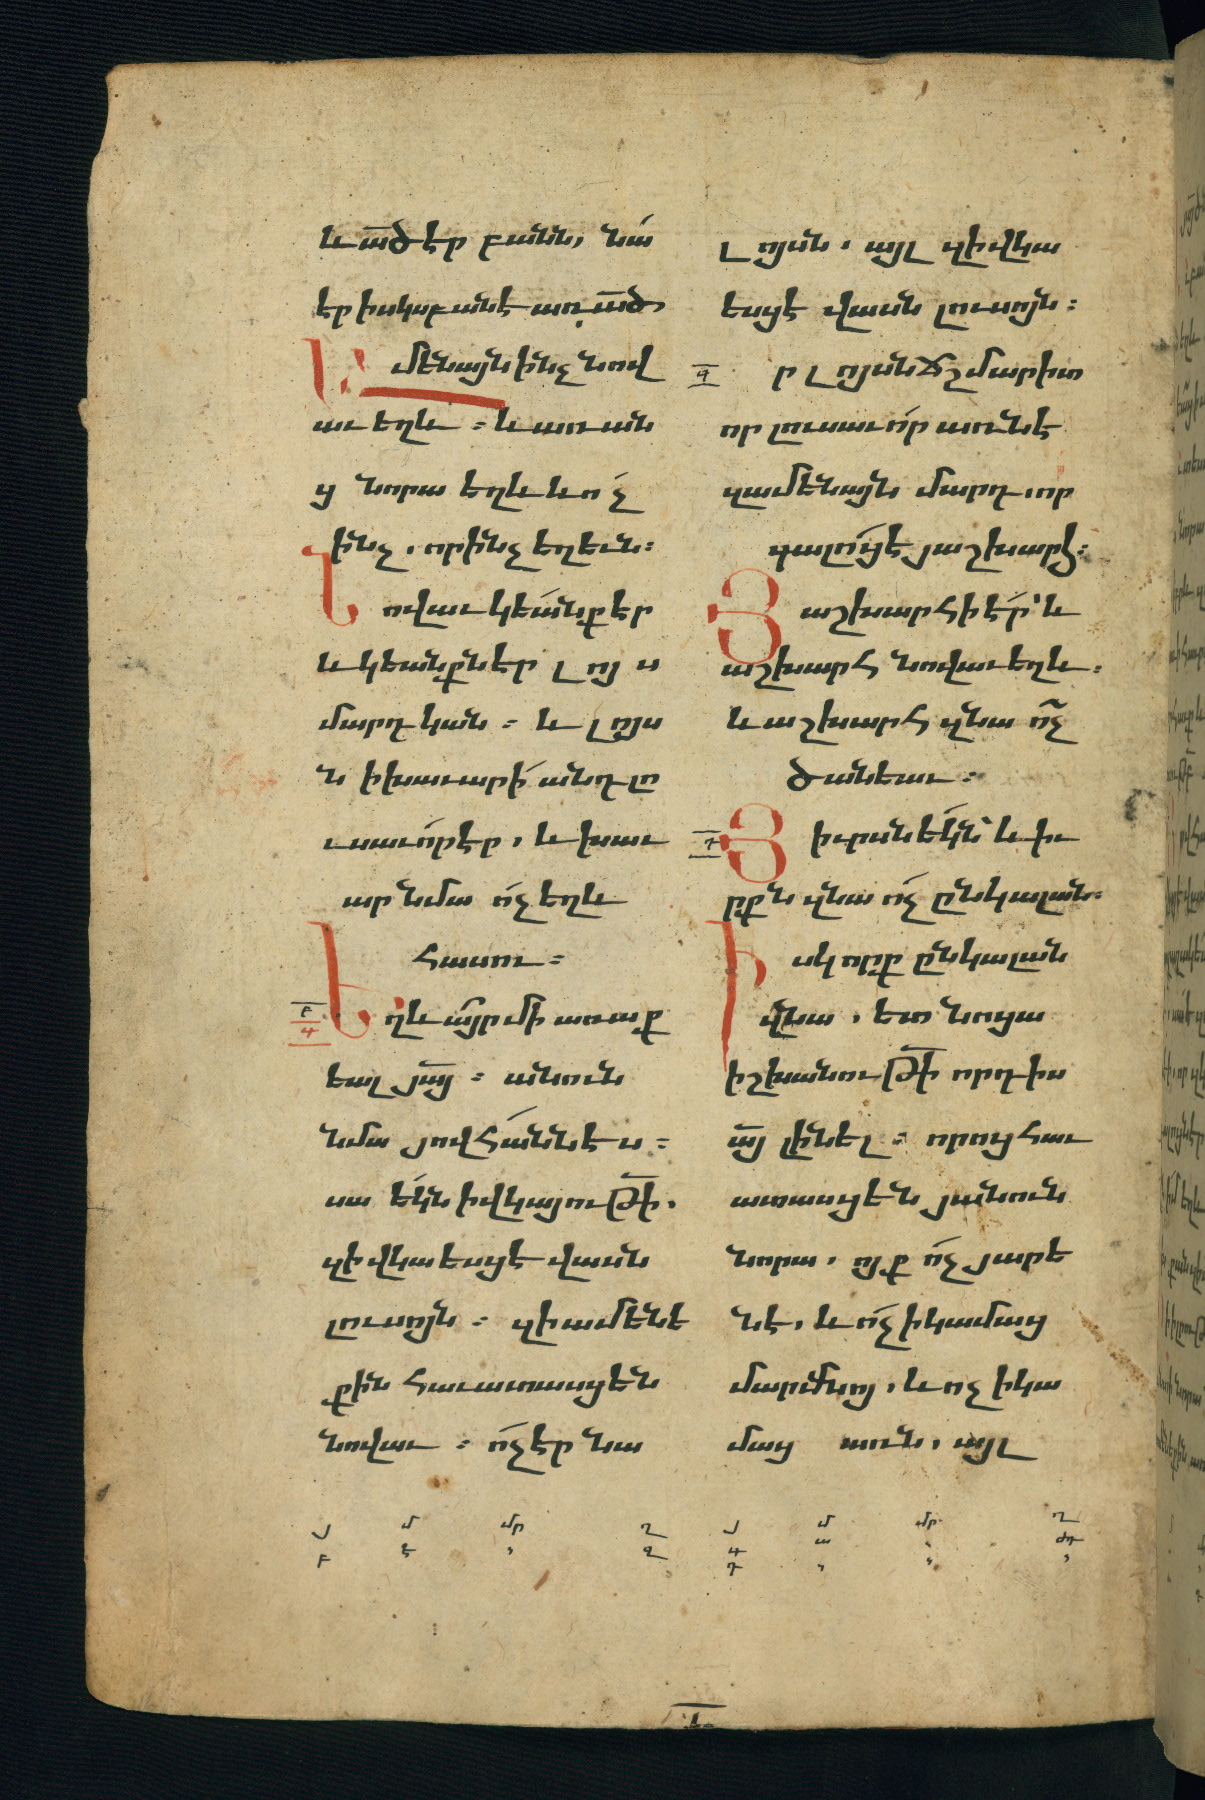 և ա՟ծ էր բանն, նա՛
էր իսկզբանէ առ ա՟ծ,
Ամենայն ինչ նով
աւ եղև : և առ ան
ց նորա եղև և ո՛չ
ինչ, որ ինչ եղեւն :
Նովաւ կեա՛նք էր
և կեանքն էր լոյս
մարդկան : և լոյս
ն ի խաւարի՛ անդ լո
ւսաւո՛ր էր, և խաւ
ար նմա ո՛չ եղև
հասու :
Եղև այր մի առաք
եալ յա՟յ : անուն
նմա յովհաննէս :
սա եկն ի վկայութի՟,
զի վկաեսցէ վասն
լուսոյն : զի ամենե
քին հաւատասցեն
նովաւ : ո՛չ էր նա
լոյսն, այլ զի վկա
եսցէ վասն լուսոյն :
գ
ր լոյսն ճշմարիտ
որ լուսաւո՛ր առնէ
զամենայն մարդ, որ
գալո՛ցէ յաշխարհ :
Յաշխարհի է՛ր՝ և
աշխարհ նովաւ եղև :
և աշխարհ զնա ո՛չ
ծանեաւ :
դ
Յիւրսն եկն՝ և իւ
րքն զնա ո՛չ ընկալան :
Իսկ որք ընկալան
զնա, ետ նոցա
իշխանութի՟ որդիս
ա՟յ լինել : որոց հաւ
ատասցեն յանուն
նորա, ոյք ո՛չ յարե
նէ, և ո՛չ ի կամաց
մարմնոյ, և ոչ ի կա
մաց առն, այլ